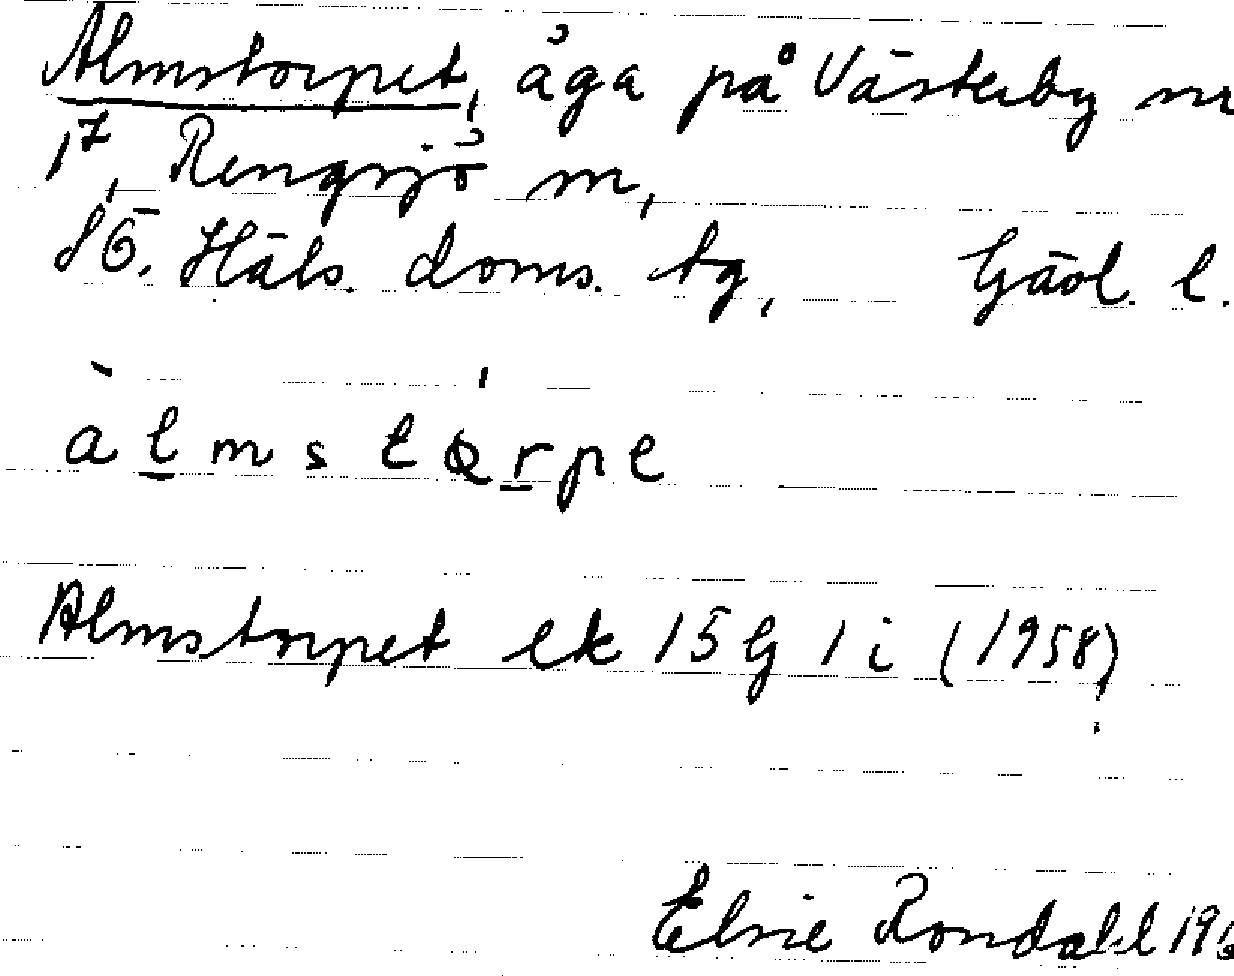 Almstorpet, äga på Västerby nr
17, Rengsjö sn,
SÖ. Häls. doms. tg, Gävl. l.
àlmstórpe
Almstorpet ek 15 G 1 i (1958)
Elsie Rondahl